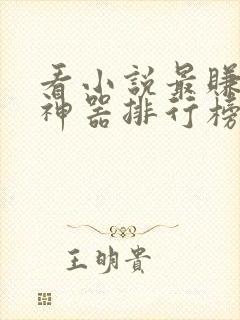 看小說最賺
神器排行榜
王明貴